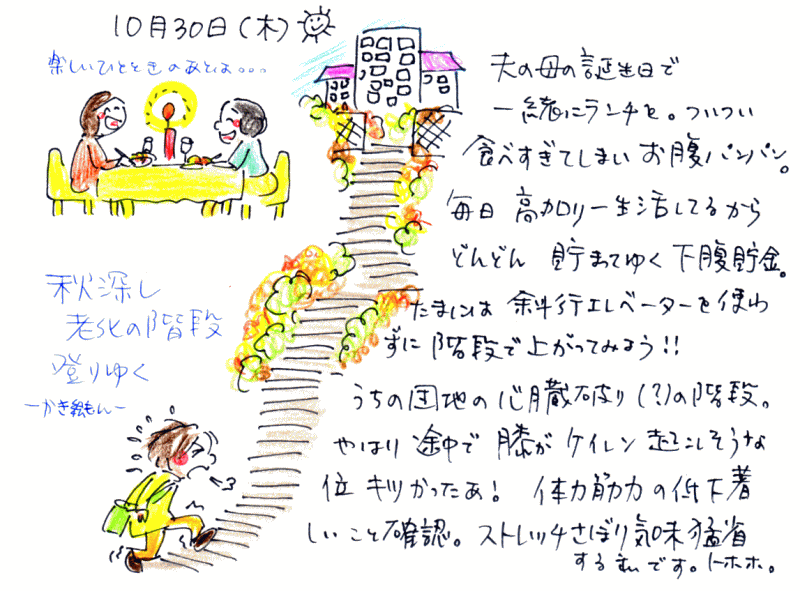 10月30日(木)
楽しいひとときのあとは。。。
夫の母の誕生日で
一緒にランチを。ついつい
食べすぎてしまいお腹パンパン。
毎日 高カロリー生活してるから
どんどん 貯まってゆく下腹貯金。
たまには 斜行エレベーターを使わ
ずに階段で上がってみよう!!
うちの団地の心臓破り(?)の階段。
やはり 途中で 膝が ケイレン 起こしそうな
位 キツかったあ! 体力筋力の低下著
しいこと確認。ストレッチさぼり気味猛省
する私です。トホホ。
秋深し
老化の階段
登りゆく
ーかき絵もんー